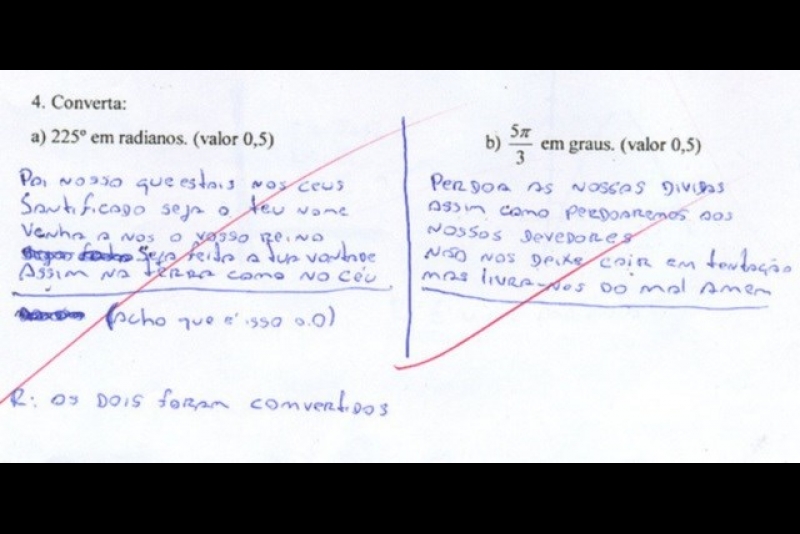 4. Converta:
a) 225º em radianos. (valor 0,5)
Pai nosso que estais nos ceus
Santificado seja o teu nome
Venha a nos o vosso reino
Seja feita a tua vontade
Assim na terra como no céu
(Acho que é isso o.O)
R: os dois foram comvertidos
b) 5π/3 em graus. (valor 0,5)
Perdoa as nossas dividas
assim como perdoaremos aos
nossos devedores
não nos deixe cair em tentação
mas livra-nos do mal amem